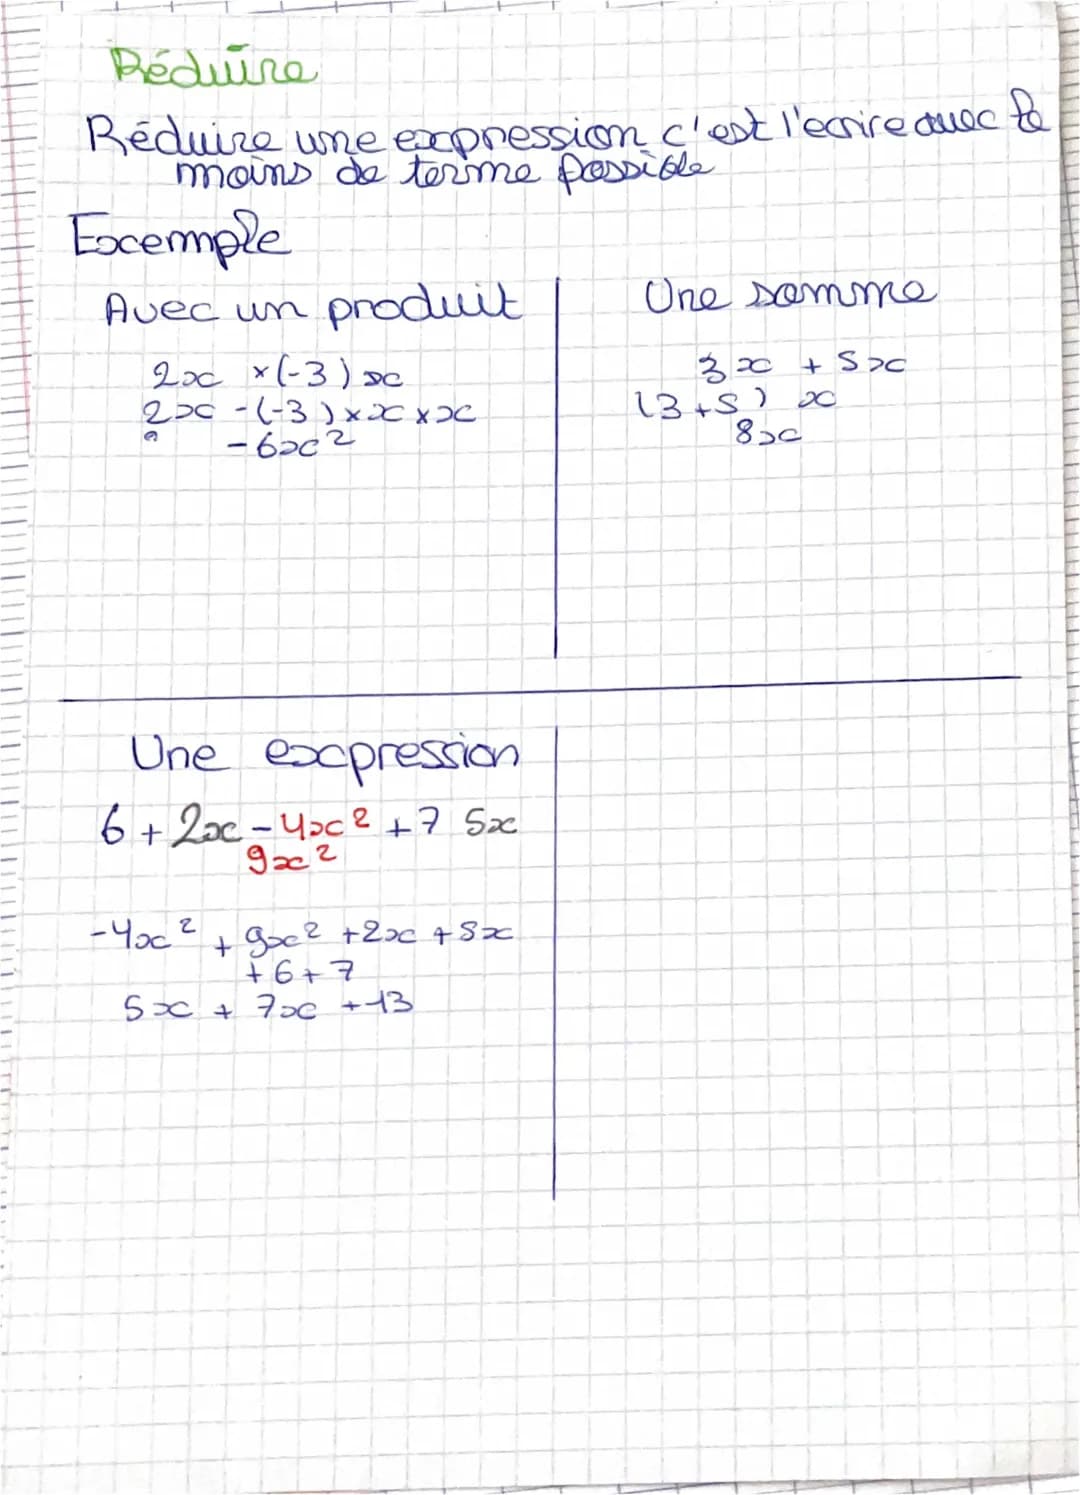 Réduire
Réduire une expression c'est l'ecrire avec le
moins de terme possible
Excemple
Avec un produit
2x × (-3) x
2x - (-3) × x × x
- 6x²
Une somme
3x + 5x
(3+5) x
8x
Une expression
6 + 2x - 4x² + 7 5x
9x²
-4x² + 9x² + 2x + 5x
+ 6 + 7
5x + 7x + 13